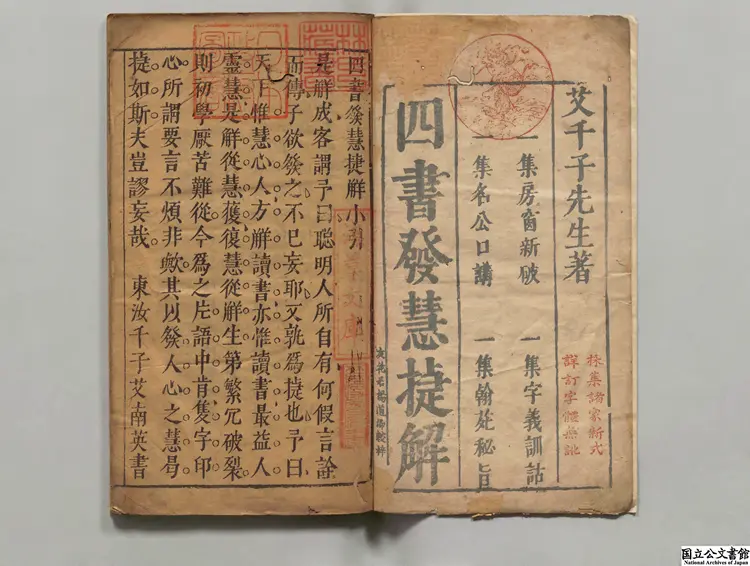 艾千子先生著
採集諸家新式
詳訂字體無訛
一集房窗新破
一集字義訓詁
一集名公口講
一集翰苑秘旨
四書發慧捷解
四書發慧捷解小引
是解成客謂予曰聰明人所自有何假言詮
而傳子欲發之不已妄耶又孰為捷也予曰
天下惟慧心人方解讀書亦惟讀書最益人
靈慧是解從慧獲復慧從解生第繁冗破裂
則初學厭苦難從今為之片語中肯隻字印
心所謂要言不煩非歟其以發人心之慧曷
捷如斯夫豈謬妄哉 東汝千子艾南英書
国立公文書館
National Archives of Japan